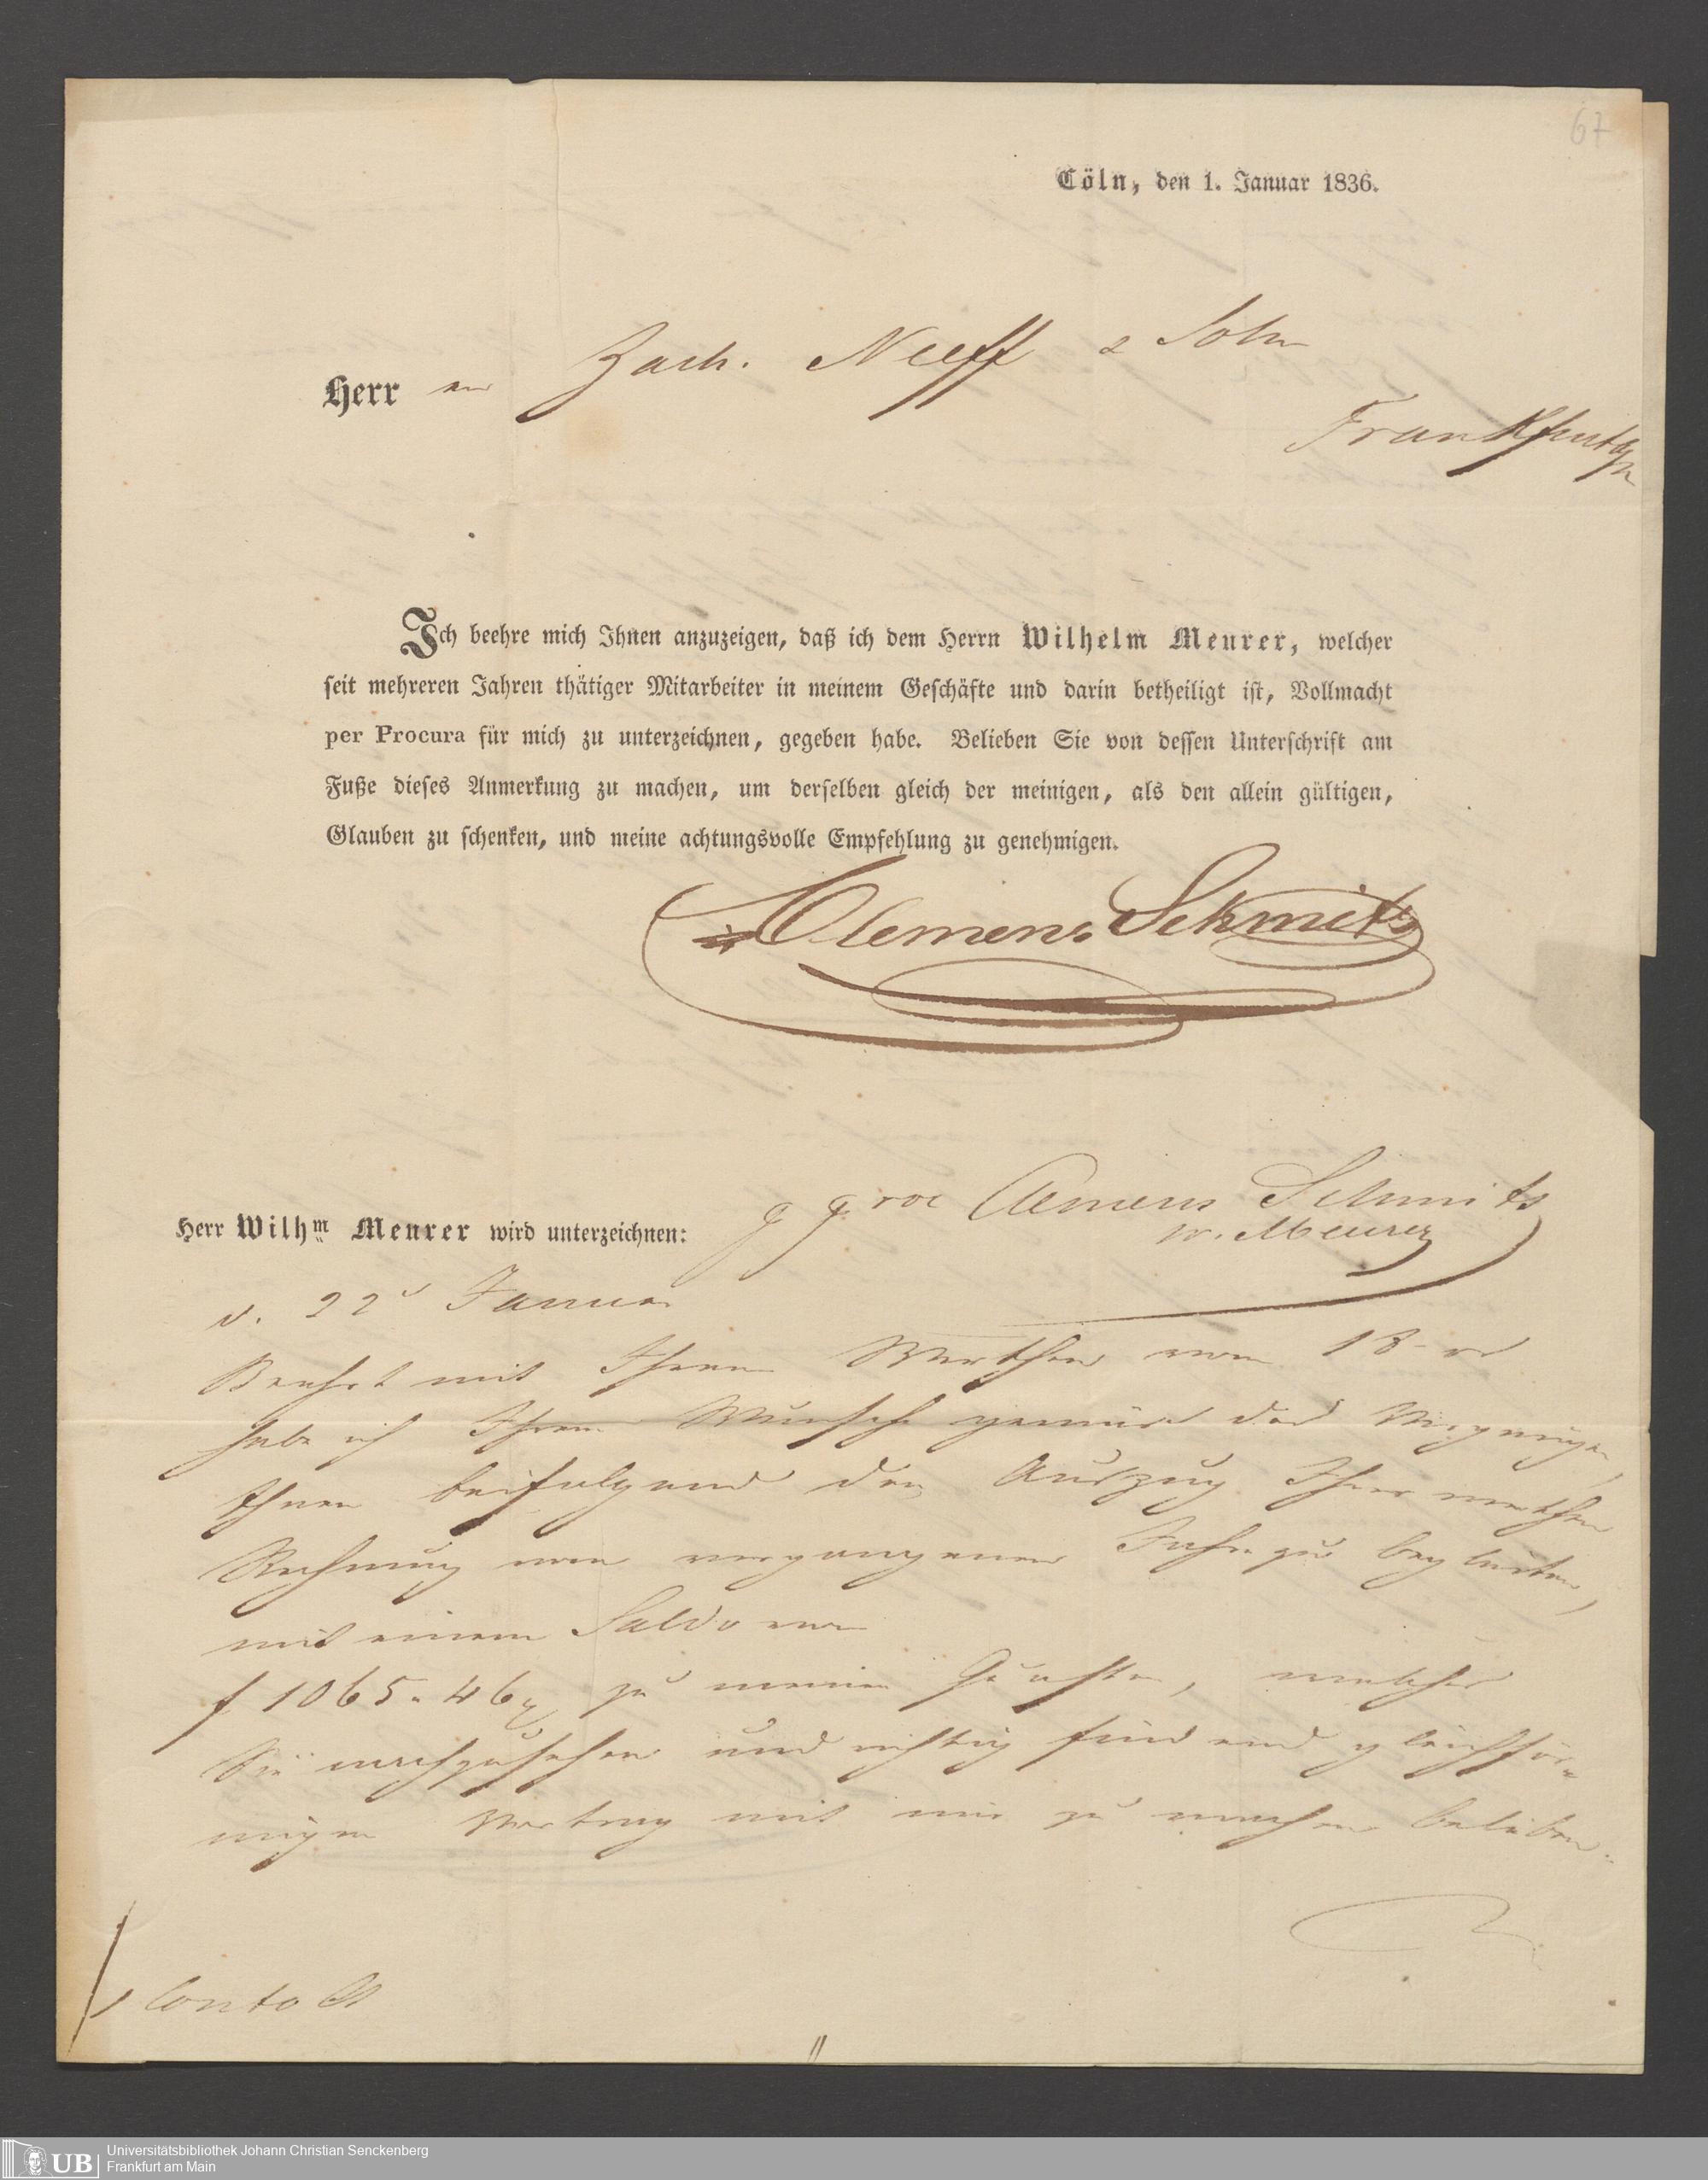 67
Cöln, den 1. Januar 1836.
Herr en Zach. Neeff & Sohn
Frankfurt a/m
Ich beehre mich Ihnen anzuzeigen, daß ich dem Herrn Wilhelm Meurer, welcher
seit mehreren Jahren thätiger Mitarbeiter in meinem Geschäfte und darin betheiligt ist, Vollmacht
per Procura für mich zu unterzeichnen, gegeben habe. Belieben Sie von dessen Unterschrift am
Fuße dieses Anmerkung zu machen, um derselben gleich der meinigen, als den allein gültigen,
Glauben zu schenken, und meine achtungsvolle Empfehlung zu genehmigen.
Clemens Schmits
Herr Wilhm Meurer wird unterzeichnen: Clemens Schmits
W. Meurer
d. 22 Januar
Beehrt mit Ihrem Werthen vom 18
habe ich Ihrem Wunsche gemäs das Vergnügen,
Ihnen beifolgend den Auszug Ihrer werthen
Rechnung vom vergangenen Jahr zu begleiten,
mit einem Saldo von
f 1065. 46 zu meinen Gunsten, welchen
Sie nachzusehen und richtig findend gleichför-
migen Vortrag mit mir zu machen belieben.
1 Conto Ct
UB Universitätsbibliothek Johann Christian Senckenberg
Frankfurt am Main